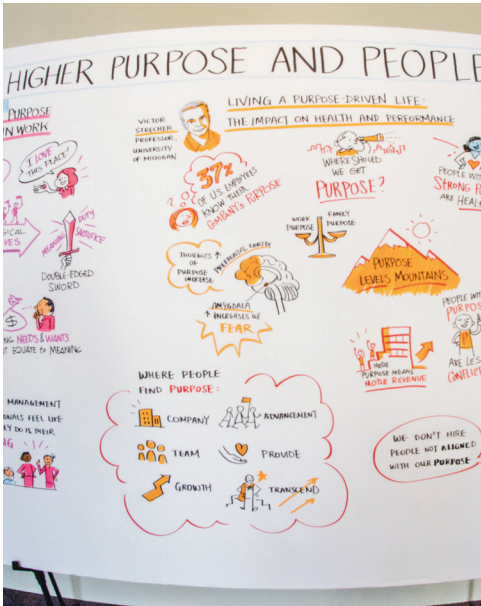 HIGHER PURPOSE AND PEOPLE
PURPOSE
IN WORK
I LOVE
THIS PLACE!
MEANING
DUTY
SACRIFICE
DOUBLE-EDGED
SWORD
$
NEEDS & WANTS
EQUATE to MEANING
MANAGEMENT
FEEL LIKE
DO IS THEIR
VICTOR
STRECHER
PROFESSOR,
UNIVERSITY
OF MICHIGAN
LIVING A PURPOSE-DRIVEN LIFE:
THE IMPACT ON HEALTH AND PERFORMANCE
37%
OF US EMPLOYEES
KNOW THEIR
COMPANY'S PURPOSE
WHERE SHOULD
WE GET
PURPOSE?
PEOPLE
STRONG
ARE
WORK
PURPOSE
FAMILY
PURPOSE
THOUGHTS
OF
PURPOSE
INCREASE
AMYGDALA
INCREASES w/
FEAR
PURPOSE
LEVELS MOUNTAINS
MORE
PURPOSE MEANS
MORE REVENUE
PEOPLE
PURPOSE
ARE
CONFLICT
WHERE PEOPLE
FIND PURPOSE:
COMPANY
ADVANCEMENT
TEAM
PROVIDE
GROWTH
TRANSCEND
WE DON'T HIRE
PEOPLE NOT ALIGNED
WITH OUR PURPOSE